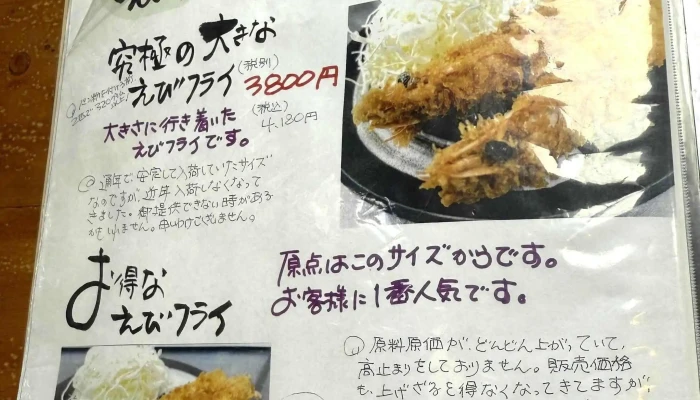 究極の大きな
えびフライ
(税別)
3800円
(税込)
4,180円
大きさに行き着いた
えびフライです。
通年で安定して入荷していたサイズ
なのですが、近年入荷しなくなって
きました。御提供できない時がある
かもしれません。申しわけございません。
原点はこのサイズからです。
お客様に1番人気です。
お得な
えびフライ
原料原価が、どんどん上がっていて、
高止まりをしておりません。販売価格
も、上げざるを得なくなってきてますが、